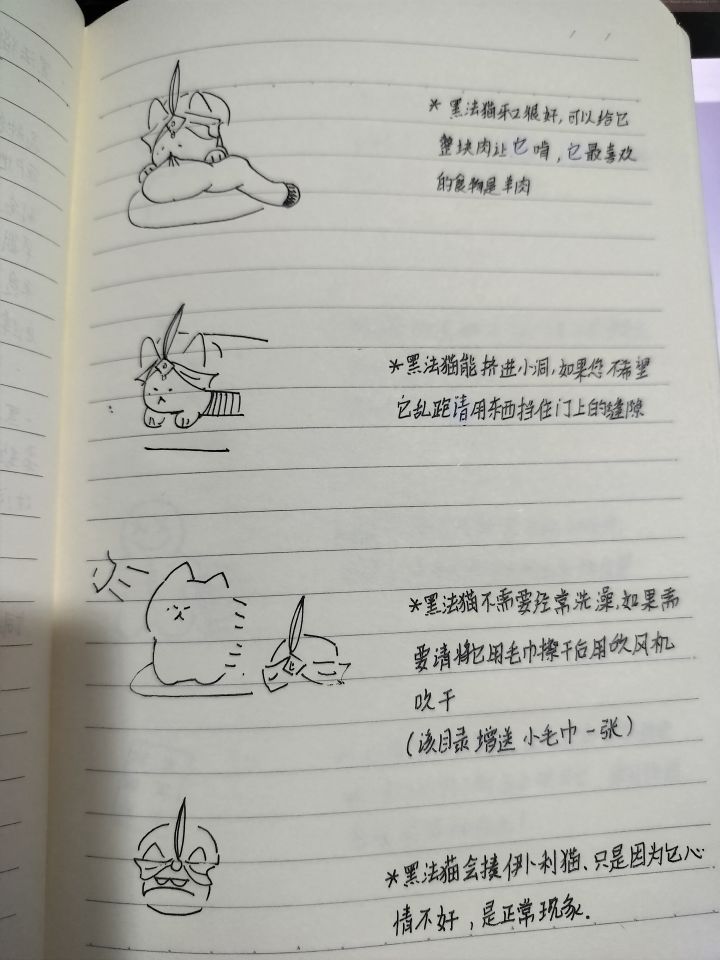 *黑法猫牙口很好,可以给它
整块肉让它啃,它最喜欢
的食物是羊肉
*黑法猫能挤进小洞,如果您不希望
它乱跑请用东西挡住门上的缝隙
*黑法猫不需要经常洗澡,如果需
要请将它用毛巾擦干后用吹风机
吹干
(该目录增送小毛巾一张)
*黑法猫会揍伊卜利猫、只是因为它心
情不好,是正常现象.